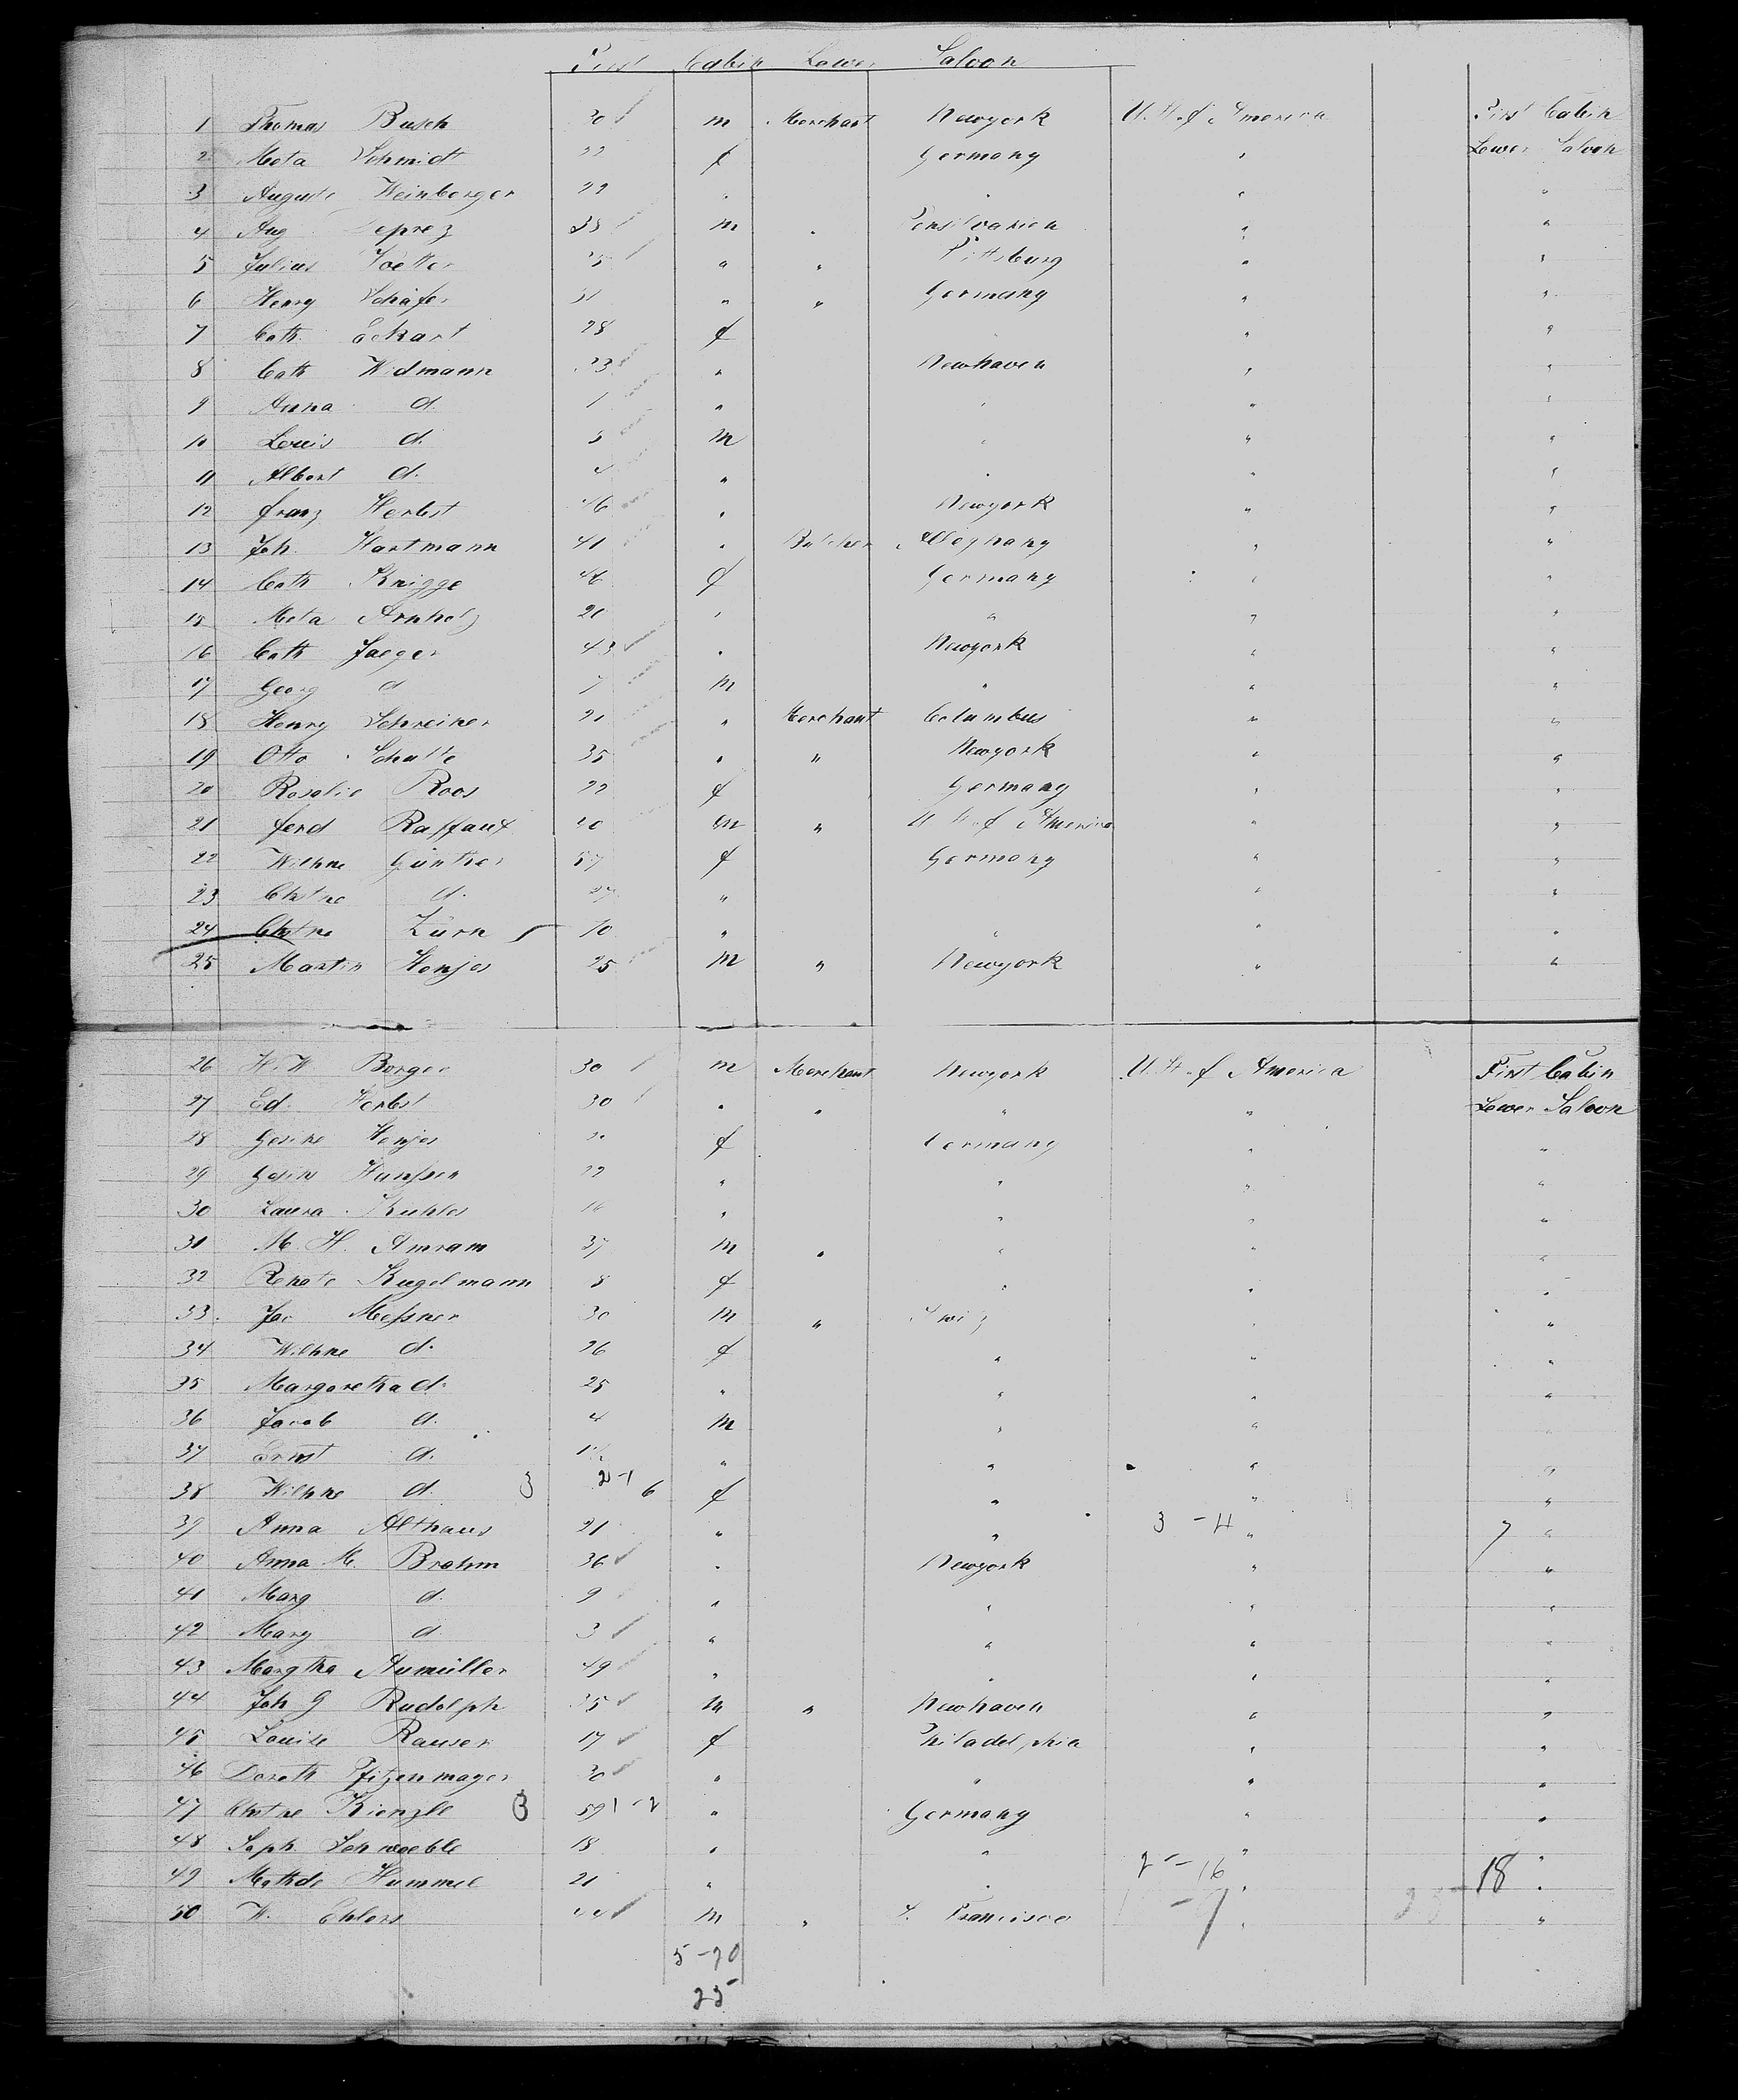 First Cabin Lower Saloon
1 Thomas Busch 30 m Merchant Newyork U. St. of America First Cabin
2 Meta Schmidt 22 f Germany " Lower Saloon
3 Auguste Weinberger 22 " " " "
4 Aug 38 m " Pensilvanien " "
5 Julius 35 " " Pittsburg " "
6 Henry Schäfer 31 " " Germany " "
7 Cath. Eckart 28 f " " "
8 Cath Widmann 33 " Newhaven " "
9 Anna d. 1 " " " "
10 Louis d. 5 m " " "
11 Albert d. 4 " " " "
12 Franz Herbst 46 " Newyork " "
13 Joh. Hartmann 41 " Butcher Alleghany " "
14 Cath Knigge 46 f Germany " "
15 Meta Arnholz 21 " " " "
16 Cath Jaeger 43 " Newyork " "
17 Georg d 7 m " " "
18 Henry Schreiner 21 " Merchant Columbus " "
19 Otto Schulte 35 " " Newyork " "
20 Rosalie Roos 22 f Germany " "
21 Ferd Raffauf 40 m " U St of America " "
22 Wilhne Günther 57 f Germany " "
23 Chstne d. 27 " " "
24 Chstne Zürn 10 " " " "
25 Martin Henjes 25 m " Newyork " "
26 H. W. Borger 30 m Merchant Newyork U. St. of America First Cabin
27 Ed. Herbst 30 " " " " Lower Saloon
28 Gesine Henjes 20 f Germany " "
29 Gesine Hanssen 22 " " " "
30 Laura Kuhles 16 " " " "
31 M. H. Amram 37 m " " " "
32 Renate Kugelmann 8 f " " "
33. Jac Messner 30 m " Swiz " "
34 Wilhne d. 26 f " " "
35 Margaretha d. 25 " " " "
36 Jacob d. 4 m " " "
37 Ernst d. 1½ " " " "
38 Wilhne d. 3 2-1 6 f " " "
39 Anna Althaus 21 " " 3 - 4 " 7 "
40 Anna M. Brahm 36 " Newyork " "
41 Marg d. 9 " " " "
42 Mary d 3 " " " "
43 Margtha Aumüller 49 " " " "
44 Joh G Rudolph 35 m " Newhaven " "
45 Louise Rauser 17 f Philadelphia " "
46 Doroth Pfizenmayer 30 " " " "
47 Chstne Kienzle 3 59 1-2 " Germany " "
48 Soph. Schwaeble 18 " " " "
49 Mathde Hummel 21 " " 2 - 16 " 18 "
50 W. Ehlers 44 m " S. Francisco - 9 " 25 "
5 - 20
25